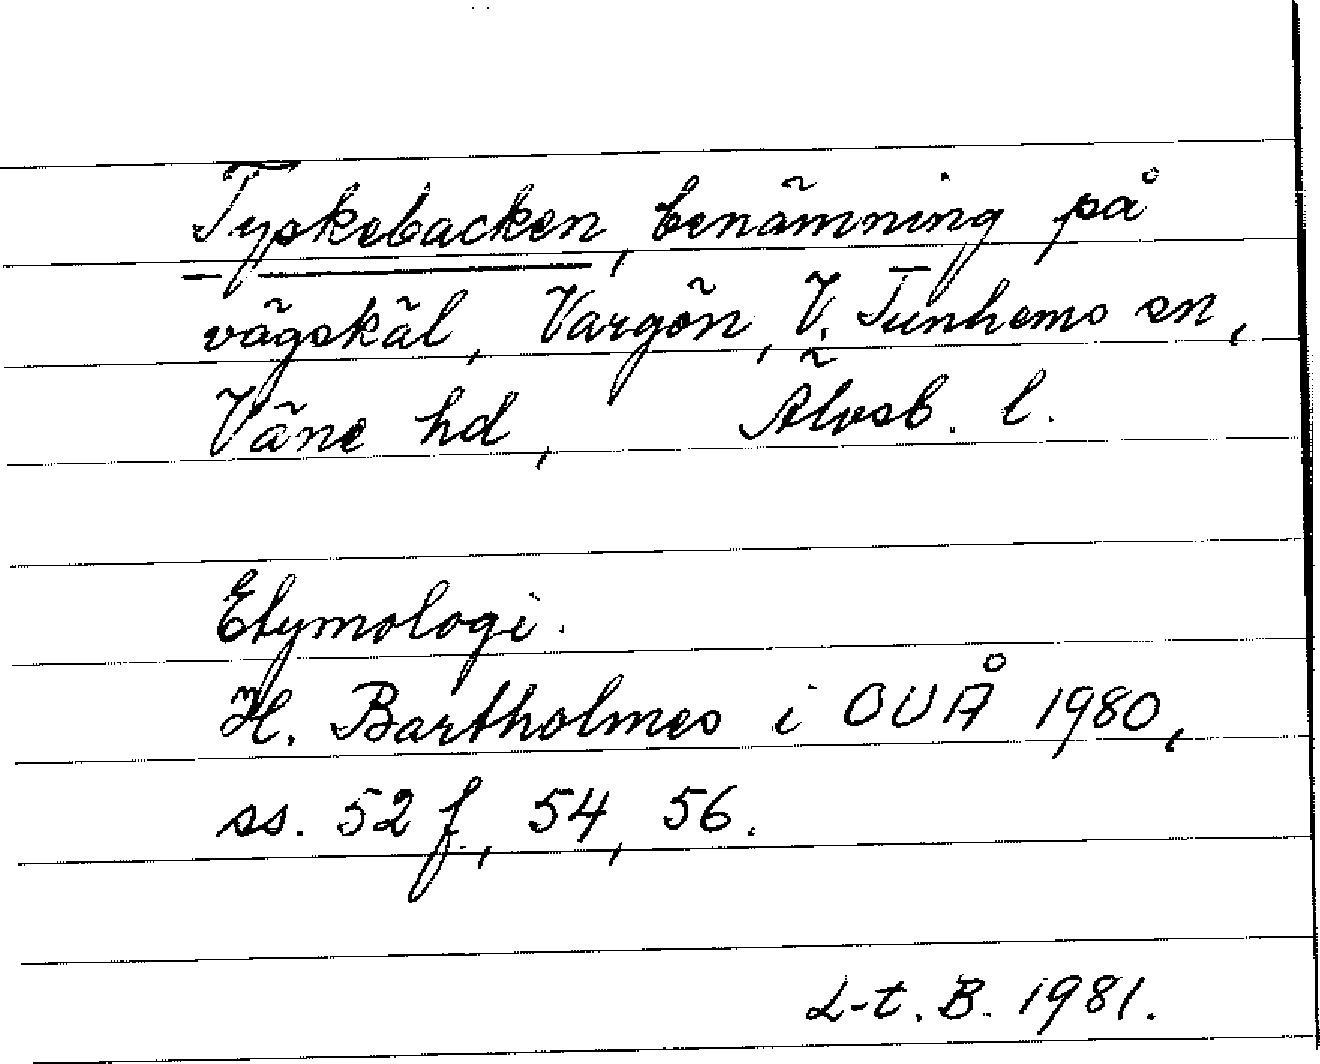 Tyskebacken, benämning på
vägskäl, Vargön, V. Tunhems sn,
Väne hd, Älvsb. l.
Etymologi.
H. Bartholmes i OUÅ 1980,
ss. 52 f., 54, 56.
L-t. B. 1981.